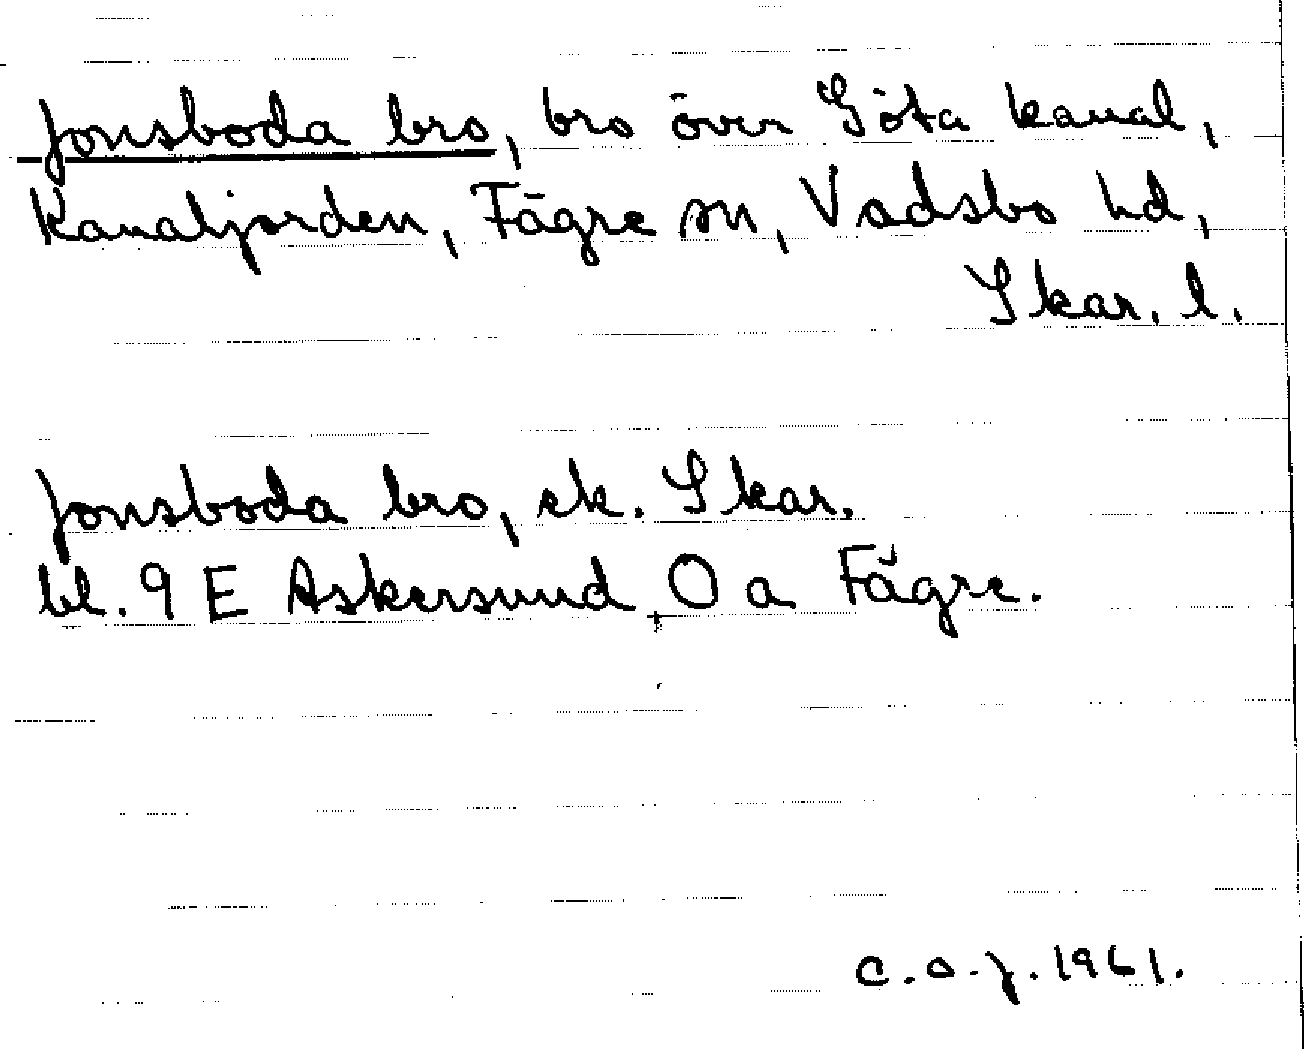 Jonsboda bro, bro över Göta kanal,
Kanaljorden, Fägre sn, Vadsbo hd,
Skar. l.
Jonsboda bro, ek. Skar.
bl. 9 E Askersund, O a Fägre.
C.O.J. 1961.